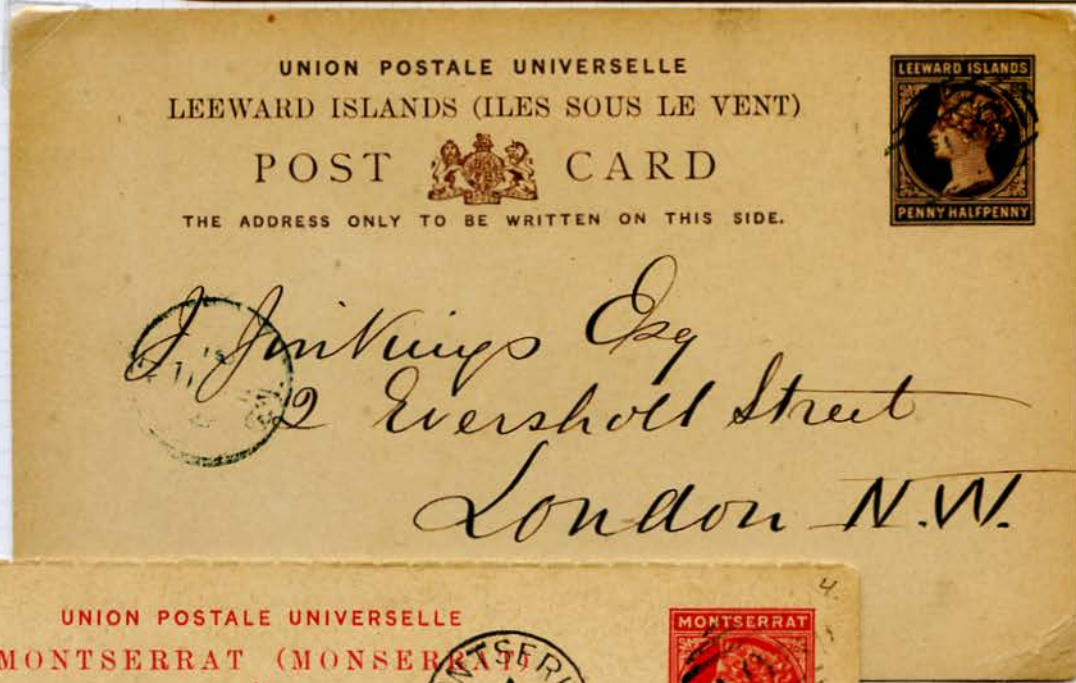 UNION POSTALE UNIVERSELLE
LEEWARD ISLANDS (ILES SOUS LE VENT)
POST CARD
THE ADDRESS ONLY TO BE WRITTEN ON THIS SIDE.
LEEWARD ISLANDS
PENNY HALFPENNY
J. Jinkings Esq
2 Eversholt Street
London N.W.
4.
UNION POSTALE UNIVERSELLE
MONTSERRAT (MONSERRAT)
MONTSERRAT